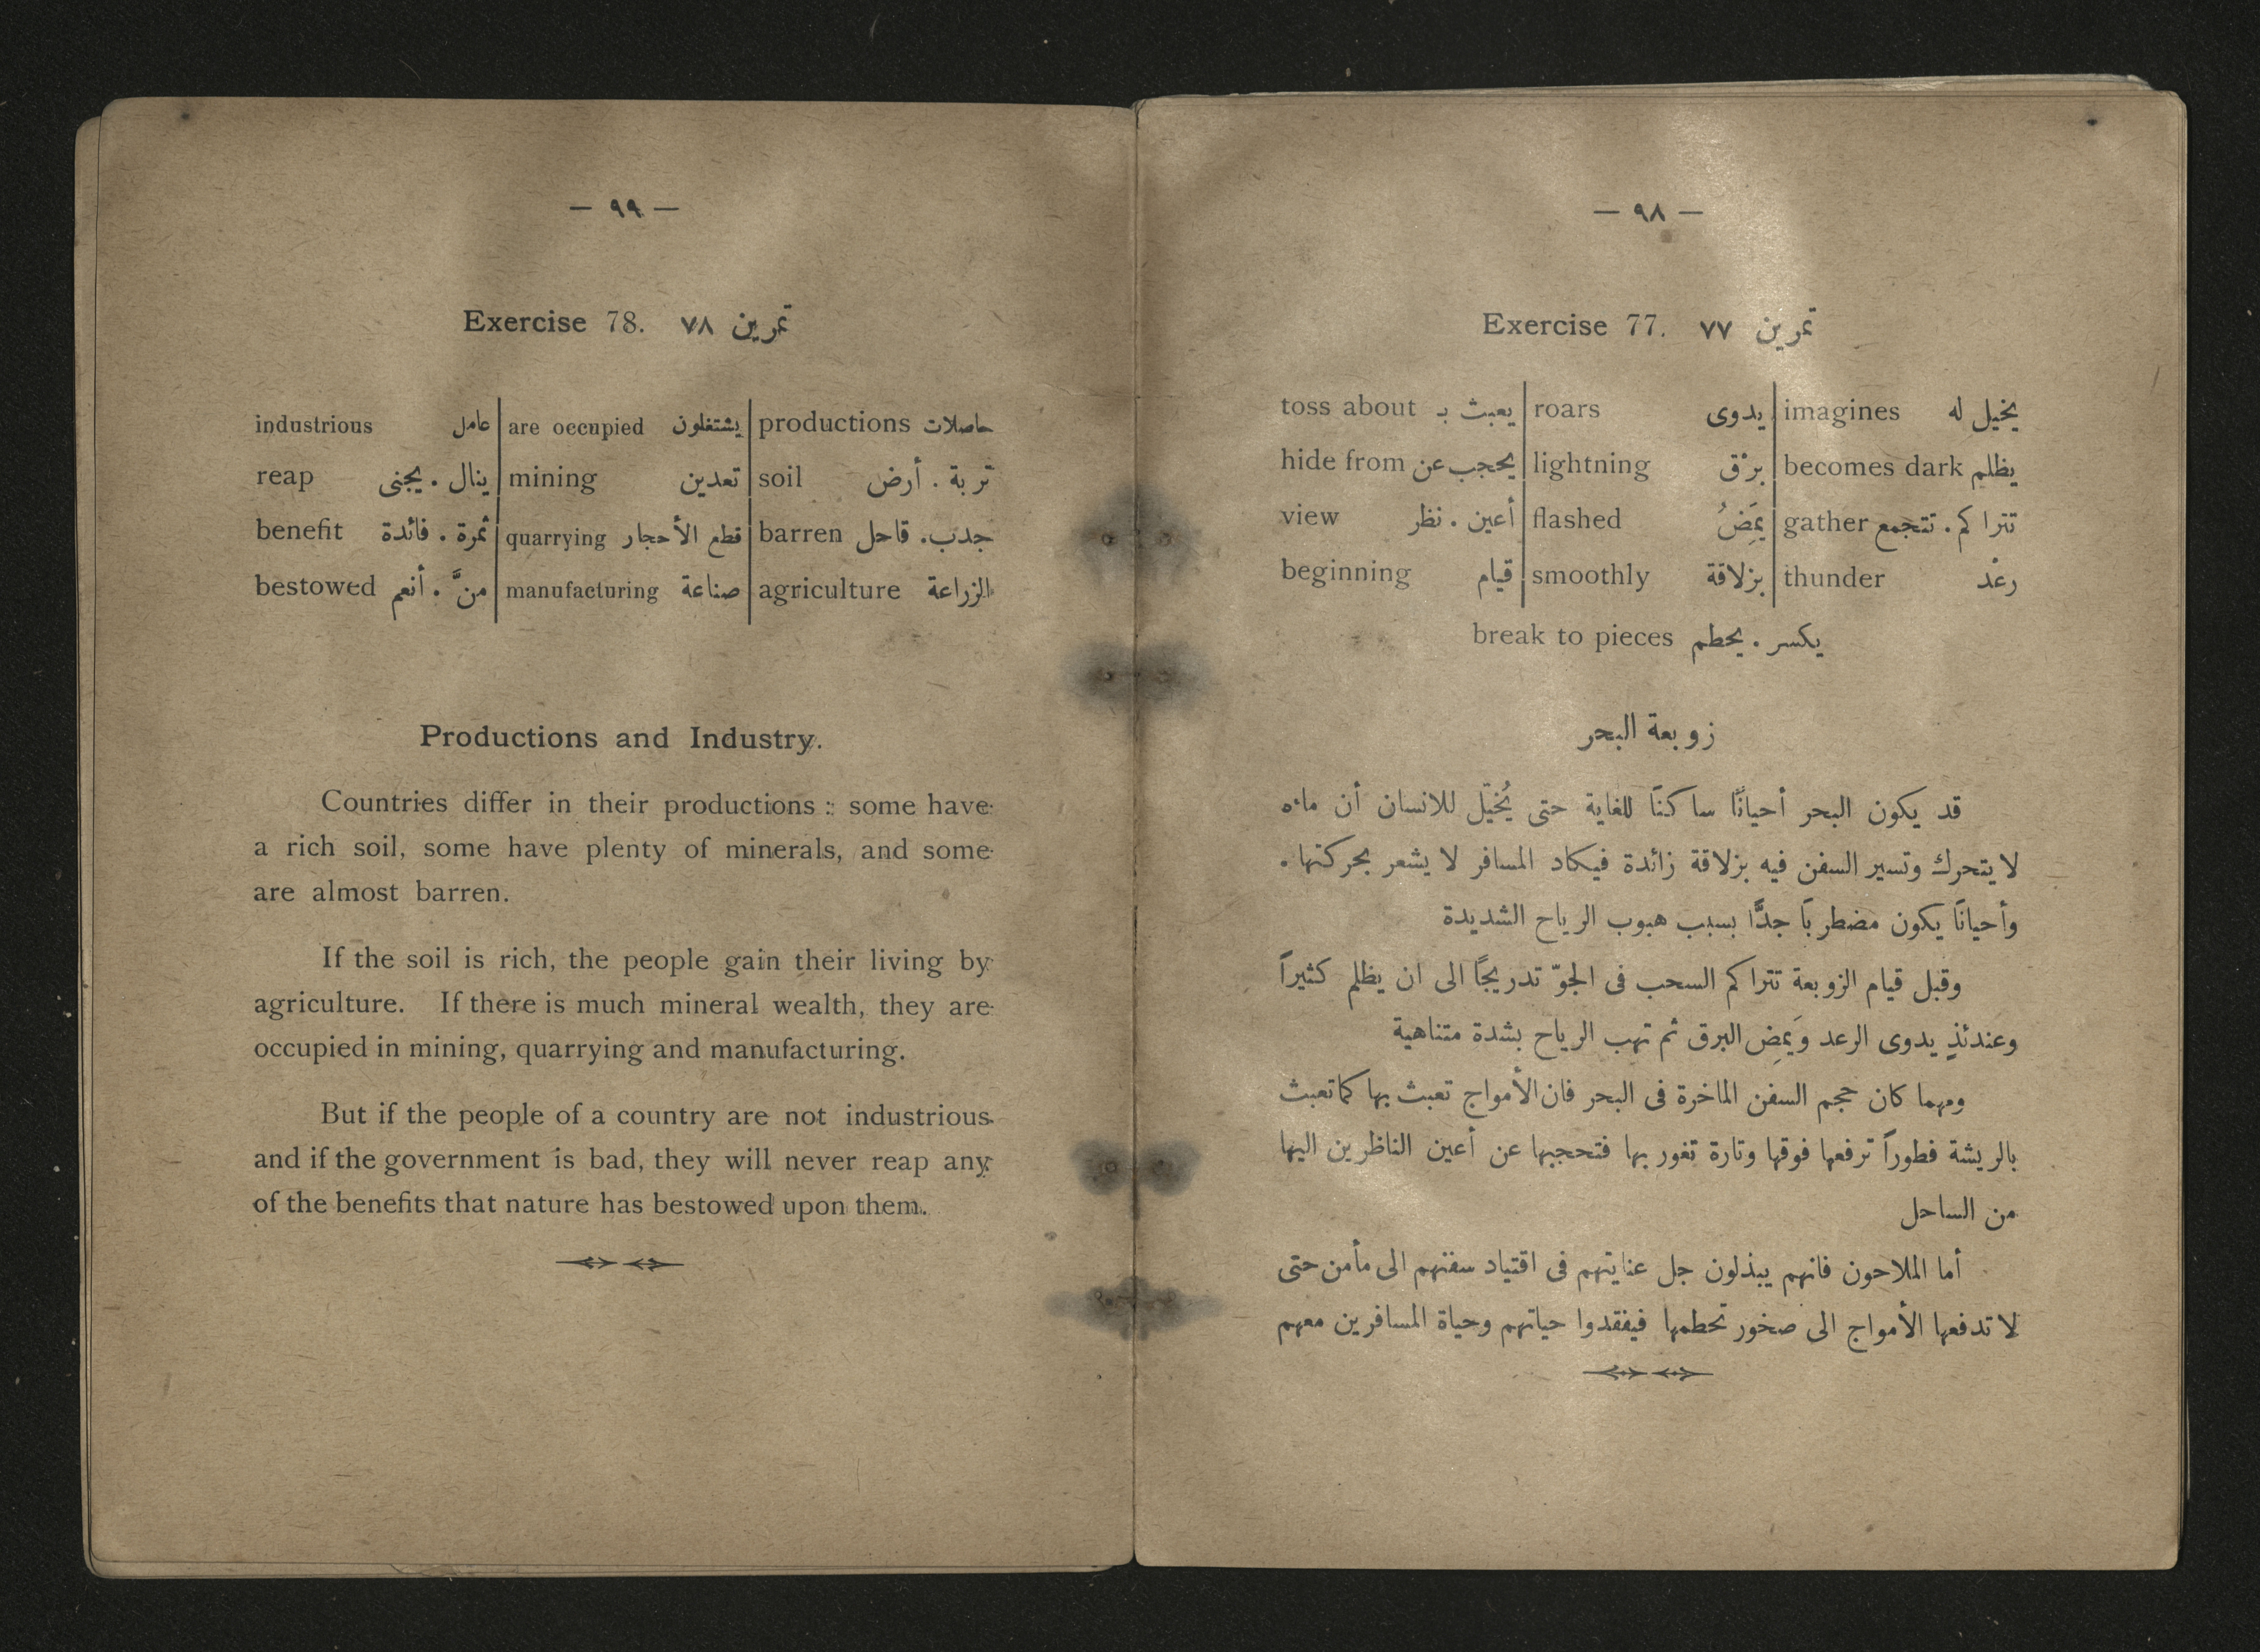 — ٩٨ —
Exercise 77. تمرين ٧٧
toss about يعبث بـ | roars يدوى | imagines يخيل له
hide from يحجب عن | lightning برْق | becomes dark يظلم
view أعين . نظر | flashed يمَضُ | gather تترا كم . تتجمع
beginning قيام | smoothly بزلاقة | thunder رعْد
break to pieces يكسر . يحطم
زوبعة البحر
قد يكون البحر أحيانًا ساكنًا للغاية حتى يُخيّل للانسان أن ماءه
لا يتحرك وتسير السفن فيه بزلاقة زائدة فيكاد المسافر لا يشعر بحركتها .
وأحيانًا يكون مضطربًا جدًّا بسبب هبوب الرياح الشديدة
وقبل قيام الزوبعة تتراكم السحب فى الجوّ تدريجًا الى ان يظلم كثيراً
وعندئذٍ يدوى الرعد ويَمِض البرق ثم تهب الرياح بشدة متناهية
ومهما كان حجم السفن الماخرة فى البحر فان الأمواج تعبث بها كما تعبث
بالريشة فطوراً ترفعها فوقها وتارة تغور بها فتحجبها عن أعين الناظرين اليها
من الساحل
أما الملاحون فانهم يبذلون جل عنايتهم فى اقتياد سفنهم الى مأمن حتى
لا تدفعها الأمواج الى صخور تحطمها فيفقدوا حياتهم وحياة المسافرين معهم
— ٩٩ —
Exercise 78. تمرين ٧٨
industrious عامل | are occupied يشتغلون | productions حاصلات
reap ينال . يجنى | mining تعدين | soil تربة . أرض
benefit ثمرة . فائدة | quarrying قطع الأحجار | barren جدب . قاحل
bestowed منَّ . أنعم | manufacturing صناعة | agriculture الزراعة
Productions and Industry.
Countries differ in their productions : some have
a rich soil, some have plenty of minerals, and some
are almost barren.
If the soil is rich, the people gain their living by
agriculture. If there is much mineral wealth, they are
occupied in mining, quarrying and manufacturing.
But if the people of a country are not industrious
and if the government is bad, they will never reap any
of the benefits that nature has bestowed upon them.